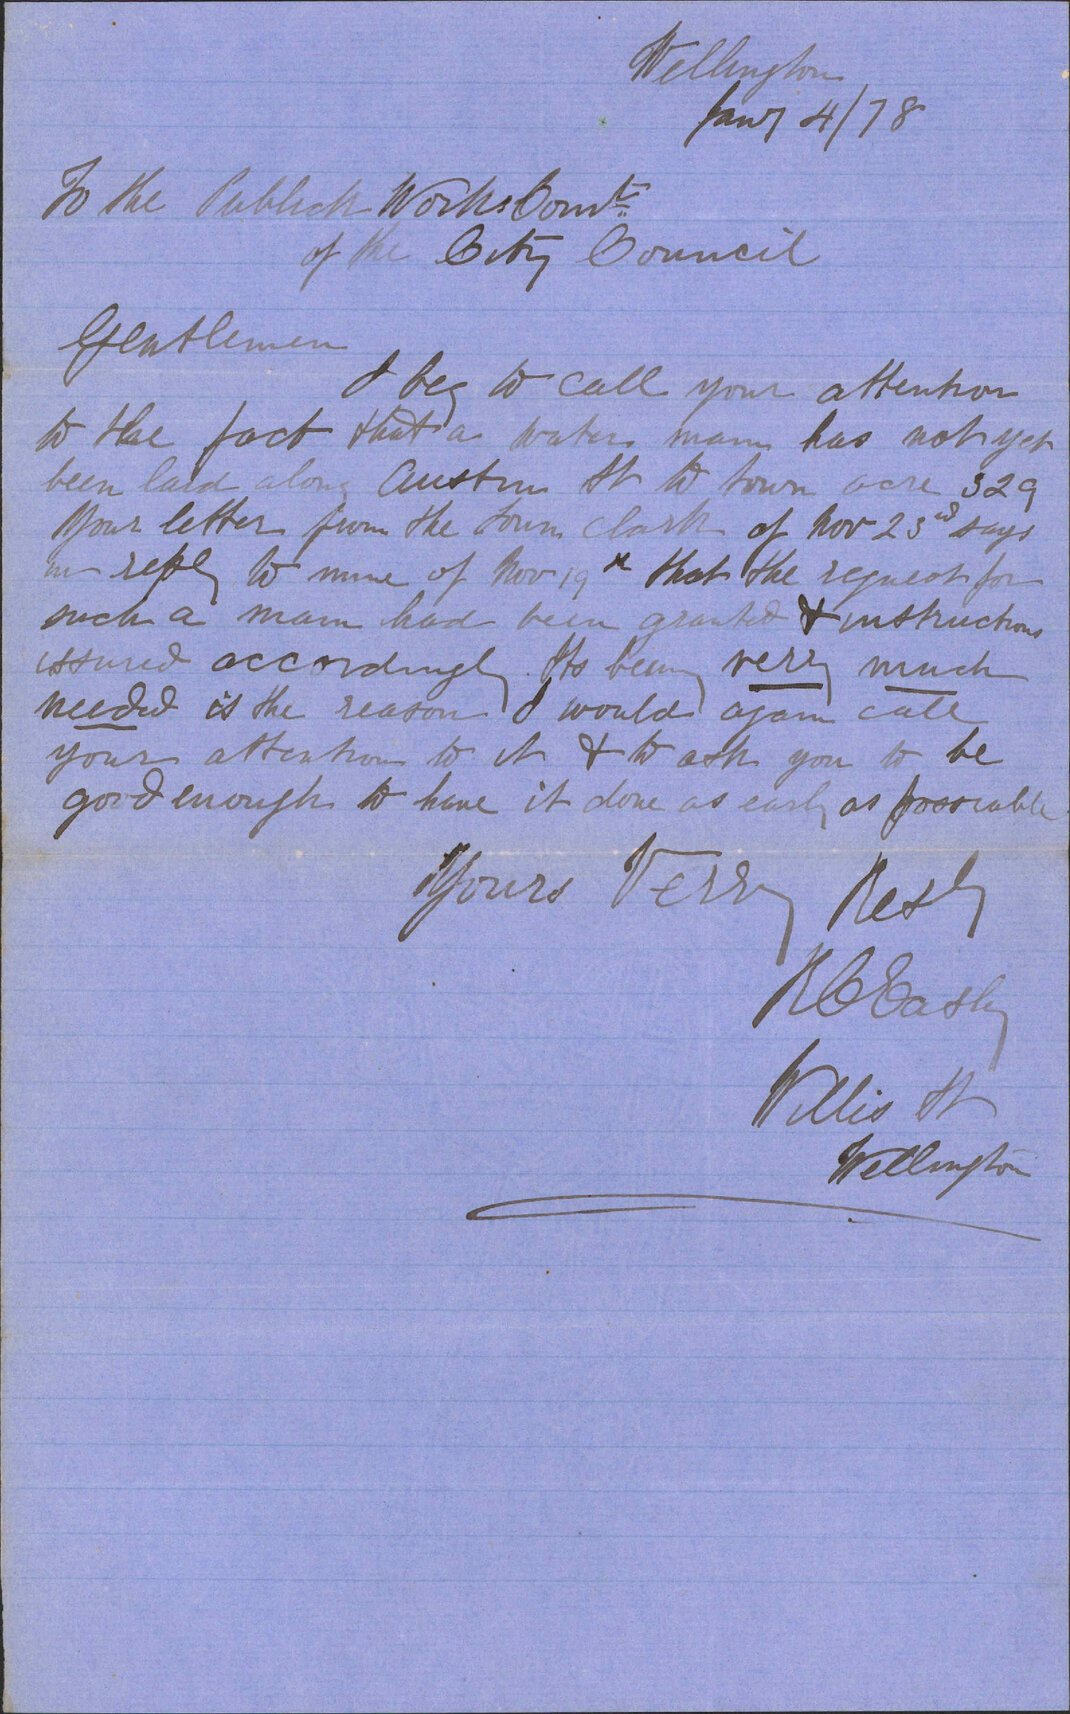 Wellington
Jany 4/78
To the Publick Works Comte
of the City Council
Gentlemen
I beg to call your attention
to the fact that a water main has not yet
been laid along Austin St to town acre 329
Your letter from the town clark of Nov 23rd says
in reply to mine of Nov 19th that the request for
such a main had been granted & instructions
issured accordingly. Its being verry much
needed is the reason I would again call
your attention to it & to ask you to be
good enough to have it done as early as possiable
Yours Verry Resly
R C Easly
Willis St
Wellington